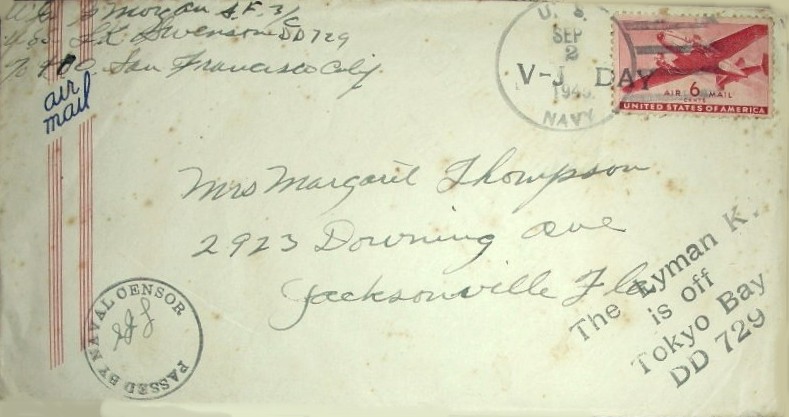 Morgan S.F. 3/c
L.K. Swenson DD 729
San Francisco Calif
air
mail
U. S.
SEP
2
V-J DAY
1945
NAVY
U.S.
AIR 6 MAIL
CENTS
UNITED STATES OF AMERICA
Mrs Margaret Thompson
2923 Downing ave
Jacksonville Fla
The Lyman K.
is off
Tokyo Bay
DD 729
PASSED BY NAVAL CENSOR